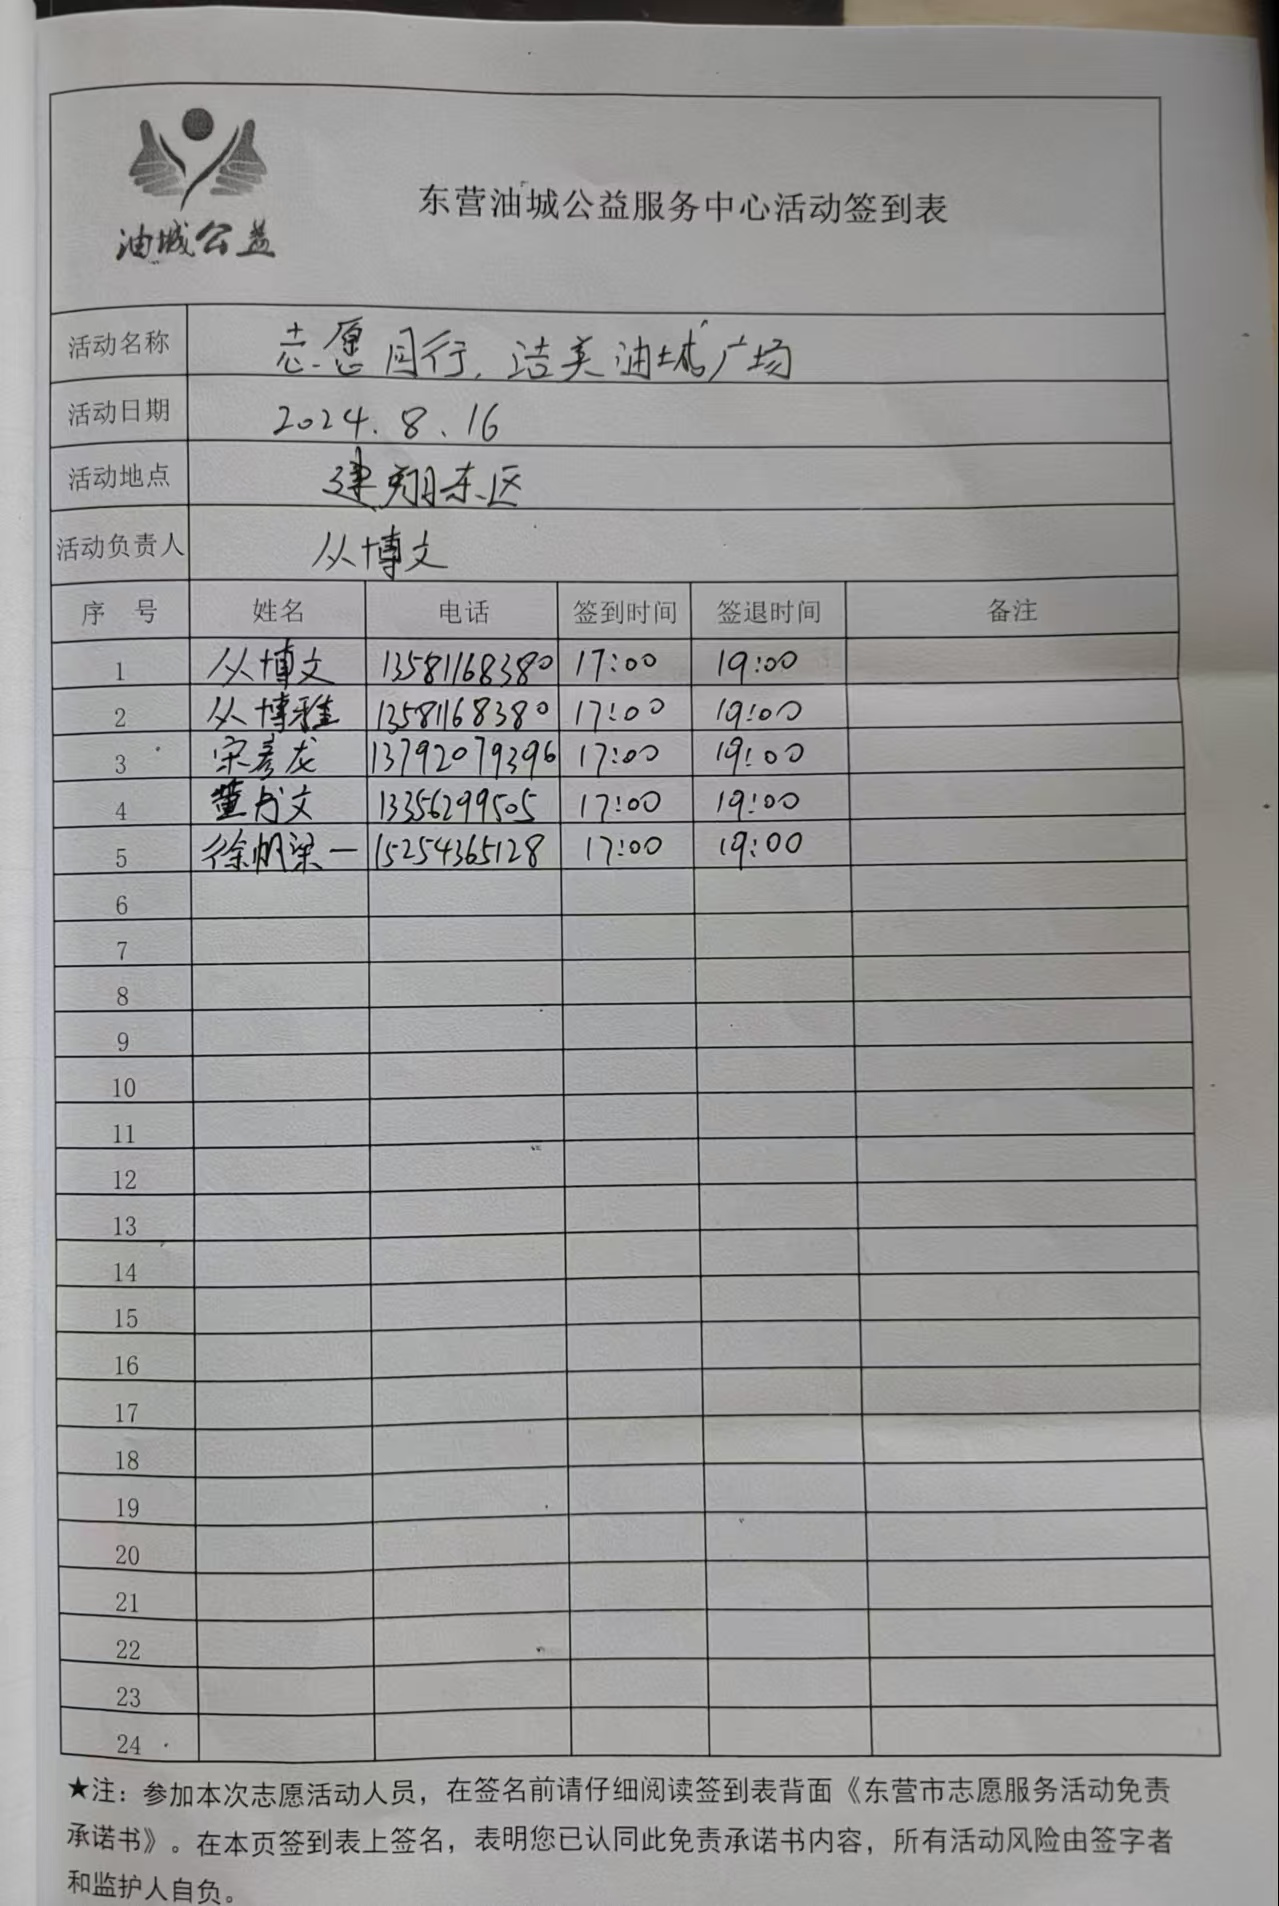 油城公益
东营油城公益服务中心活动签到表
活动名称 志愿同行，洁美油城广场
活动日期 2024.8.16
活动地点 建翔东区
活动负责人 从博文
序 号 姓名 电话 签到时间 签退时间 备注
1 从博文 13581168380 17:00 19:00
2 从博雅 13581168380 17:00 19:00
3 宋彦龙 13792079396 17:00 19:00
4 董 文 13356299505 17:00 19:00
5 徐帆梁一 15254365128 17:00 19:00
6
7
8
9
10
11
12
13
14
15
16
17
18
19
20
21
22
23
24
★注：参加本次志愿活动人员，在签名前请仔细阅读签到表背面《东营市志愿服务活动免责
承诺书》。在本页签到表上签名，表明您已认同此免责承诺书内容，所有活动风险由签字者
和监护人自负。